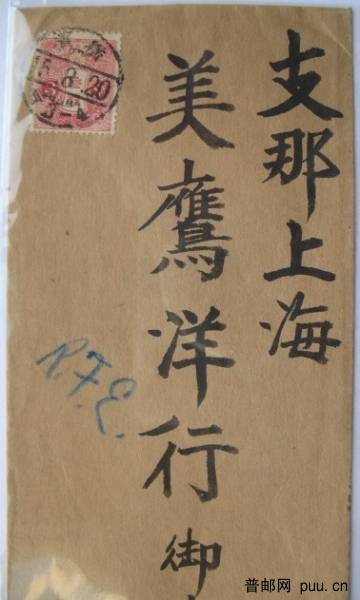 支那上海
美鷹洋行御
R.F.E.
5.8.20
普邮网 puu.cn